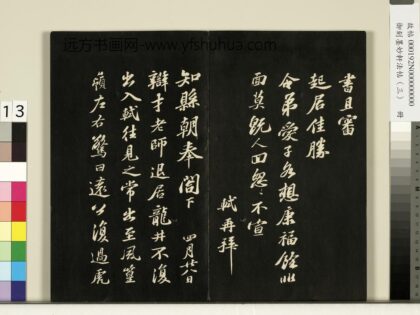 書且審
起居佳勝
令弟愛子各想康福餘非
面莫既人回怱〻不宣
軾再拜
知縣朝奉閤下 四月廿八日
辯才老師退居龍井不復
出入軾往見之常出至風篁
嶺左右驚曰遠公復過虎
远方书画网-www.yfshuhua.com
13
故帖 000192N000000000
御刻墨妙軒法帖(三) 冊